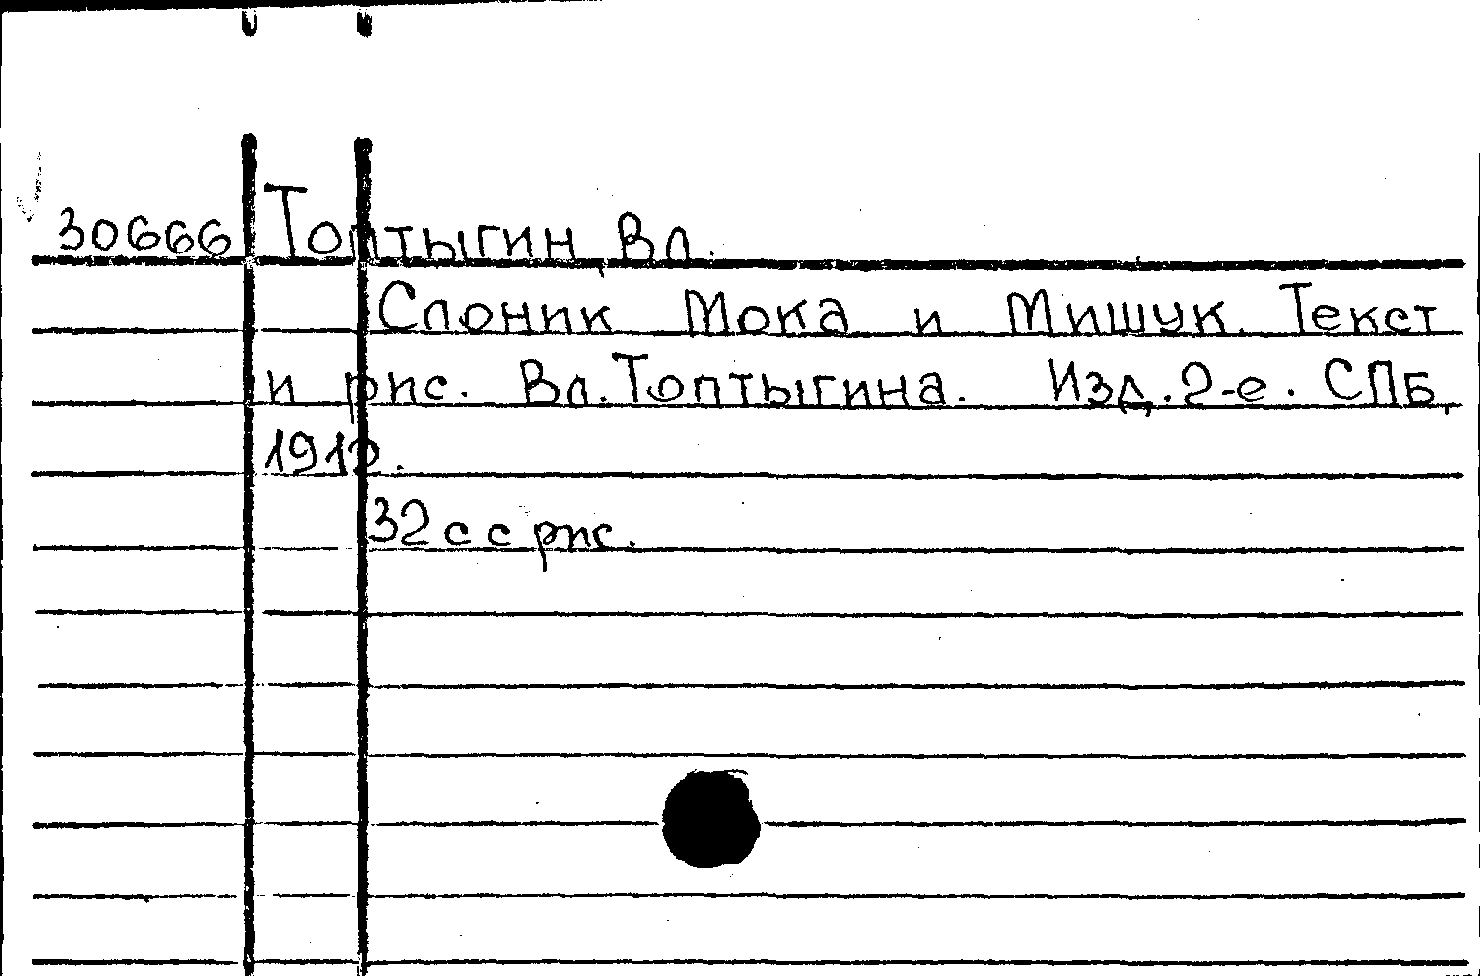 30666 Топтыгин, Вл.
Слоник Мока и Мишук. Текст
и рис. Вл. Топтыгина. Изд. 2-е. СПБ,
32 с с рис.